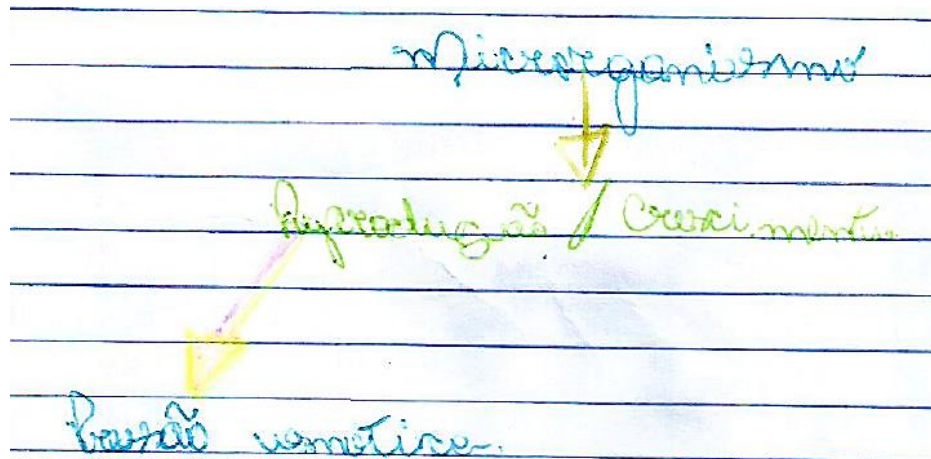 Microrganismo
Reprodução / Crescimento
Pressão osmotica.